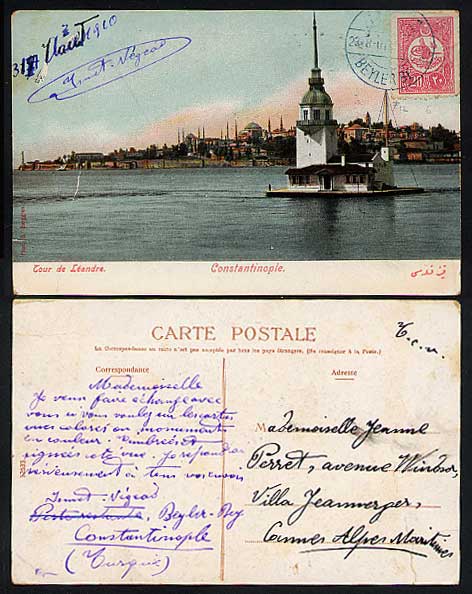 31 Aout 1910
Izzet-Négad
BEYLER
20
Tour de Léandre.
Constantinople.
CARTE POSTALE
La Correspondance au recto n'est pas acceptée par tous les pays étrangers. (Se renseigner à la Poste.)
Correspondance
Adresse
T.c.v.
Mademoiselle
Je veux faire échange avec
vous si vous voulez les cartes
vues colorés ou monuments
en couleur. Timbrés et
signées côté vue. Je repondrai
serieusement à tous vos envois
Izzet-Négad
Poste restante, Beyler-Bey
Constantinople
(Turquie)
Mademoiselle Jeanne
Perret, avenue Windsor,
Villa Jeannerper,
Cannes Alpes Maritimes